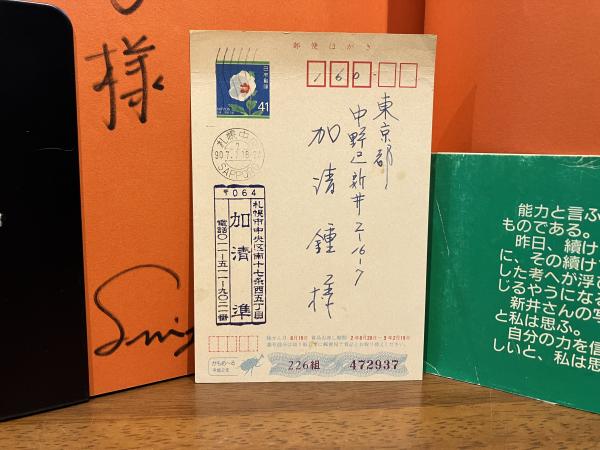 様
郵便はがき
日本郵便
41
160
東京都
中野区新井2-16-7
加清鍾様
札幌中央
90.7.
SAPPORO
〒064
札幌市中央区南十七条西五丁目
加清準
電話〇一一-五一一-九〇二一番
かもめ〜る
平成2年
226組
472937
能力と言ふ
ものである。
昨日、續け
に、その續け
した考へが浮
じるやうになる
新井さんの写
と私は思ふ。
自分の力を信
しいと、私は思